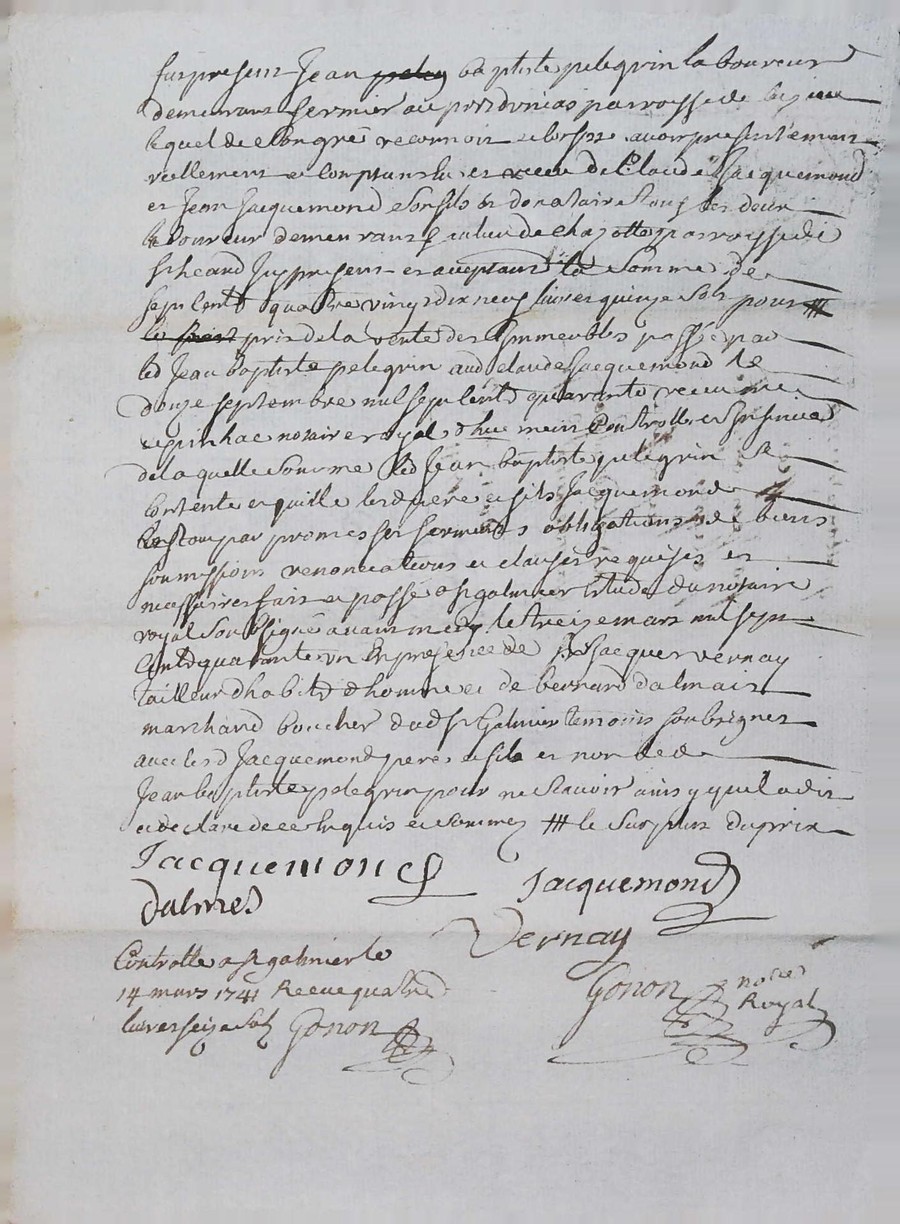 fut present Jean baptiste pelegrin laboureur
demeurant fermier au parroisse de
lequel de son gré reconnoit et confesse avoir presentement
reellement et comptant eu et receu de Claude Jacquemond
et Jean Jacquemond son fils et donataire tous les deux
laboureur demeurants au lieu de chazottes parroisse de
st heand icy present et acceptant la somme de
sept cents quatre vingt dix neuf livres quinze sols pour #
prix de la vente des immeubles passée par
led Jean baptiste pelegrin aud claude Jacquemond le
douze septembre mil sept cents quarante receu me
epinhac notaire royal controllé et insinué
de laquelle somme led Jean baptiste pelegrin se
contente et quitte lesd pere et fils Jacquemond
le tout par promesses serments obligations de biens
soumissions renonciations et clauses requises et
necessaires fait et passé a st galmier etude du notaire
royal soussigné avant midy le treize mars mil sept
cents quarante un en presence de Sr Jacques vernay
tailleur d'habits d'homme et de bernard dalmais
marchand boucher dud st Galmier temoins soubsignes
avec lesd Jacquemond pere et fils et non led
Jean baptiste pelegrin pour ne scavoir ainsy qu'il a dit
et declaré de ce enquis et sommé # le surplus du prix
Jacquemond Jacquemond
dalmes
Vernay
Controllé a st galmier le
14 mars 1741 Receu quatre
livres seize sols Gonon
Gonon nore
Royal